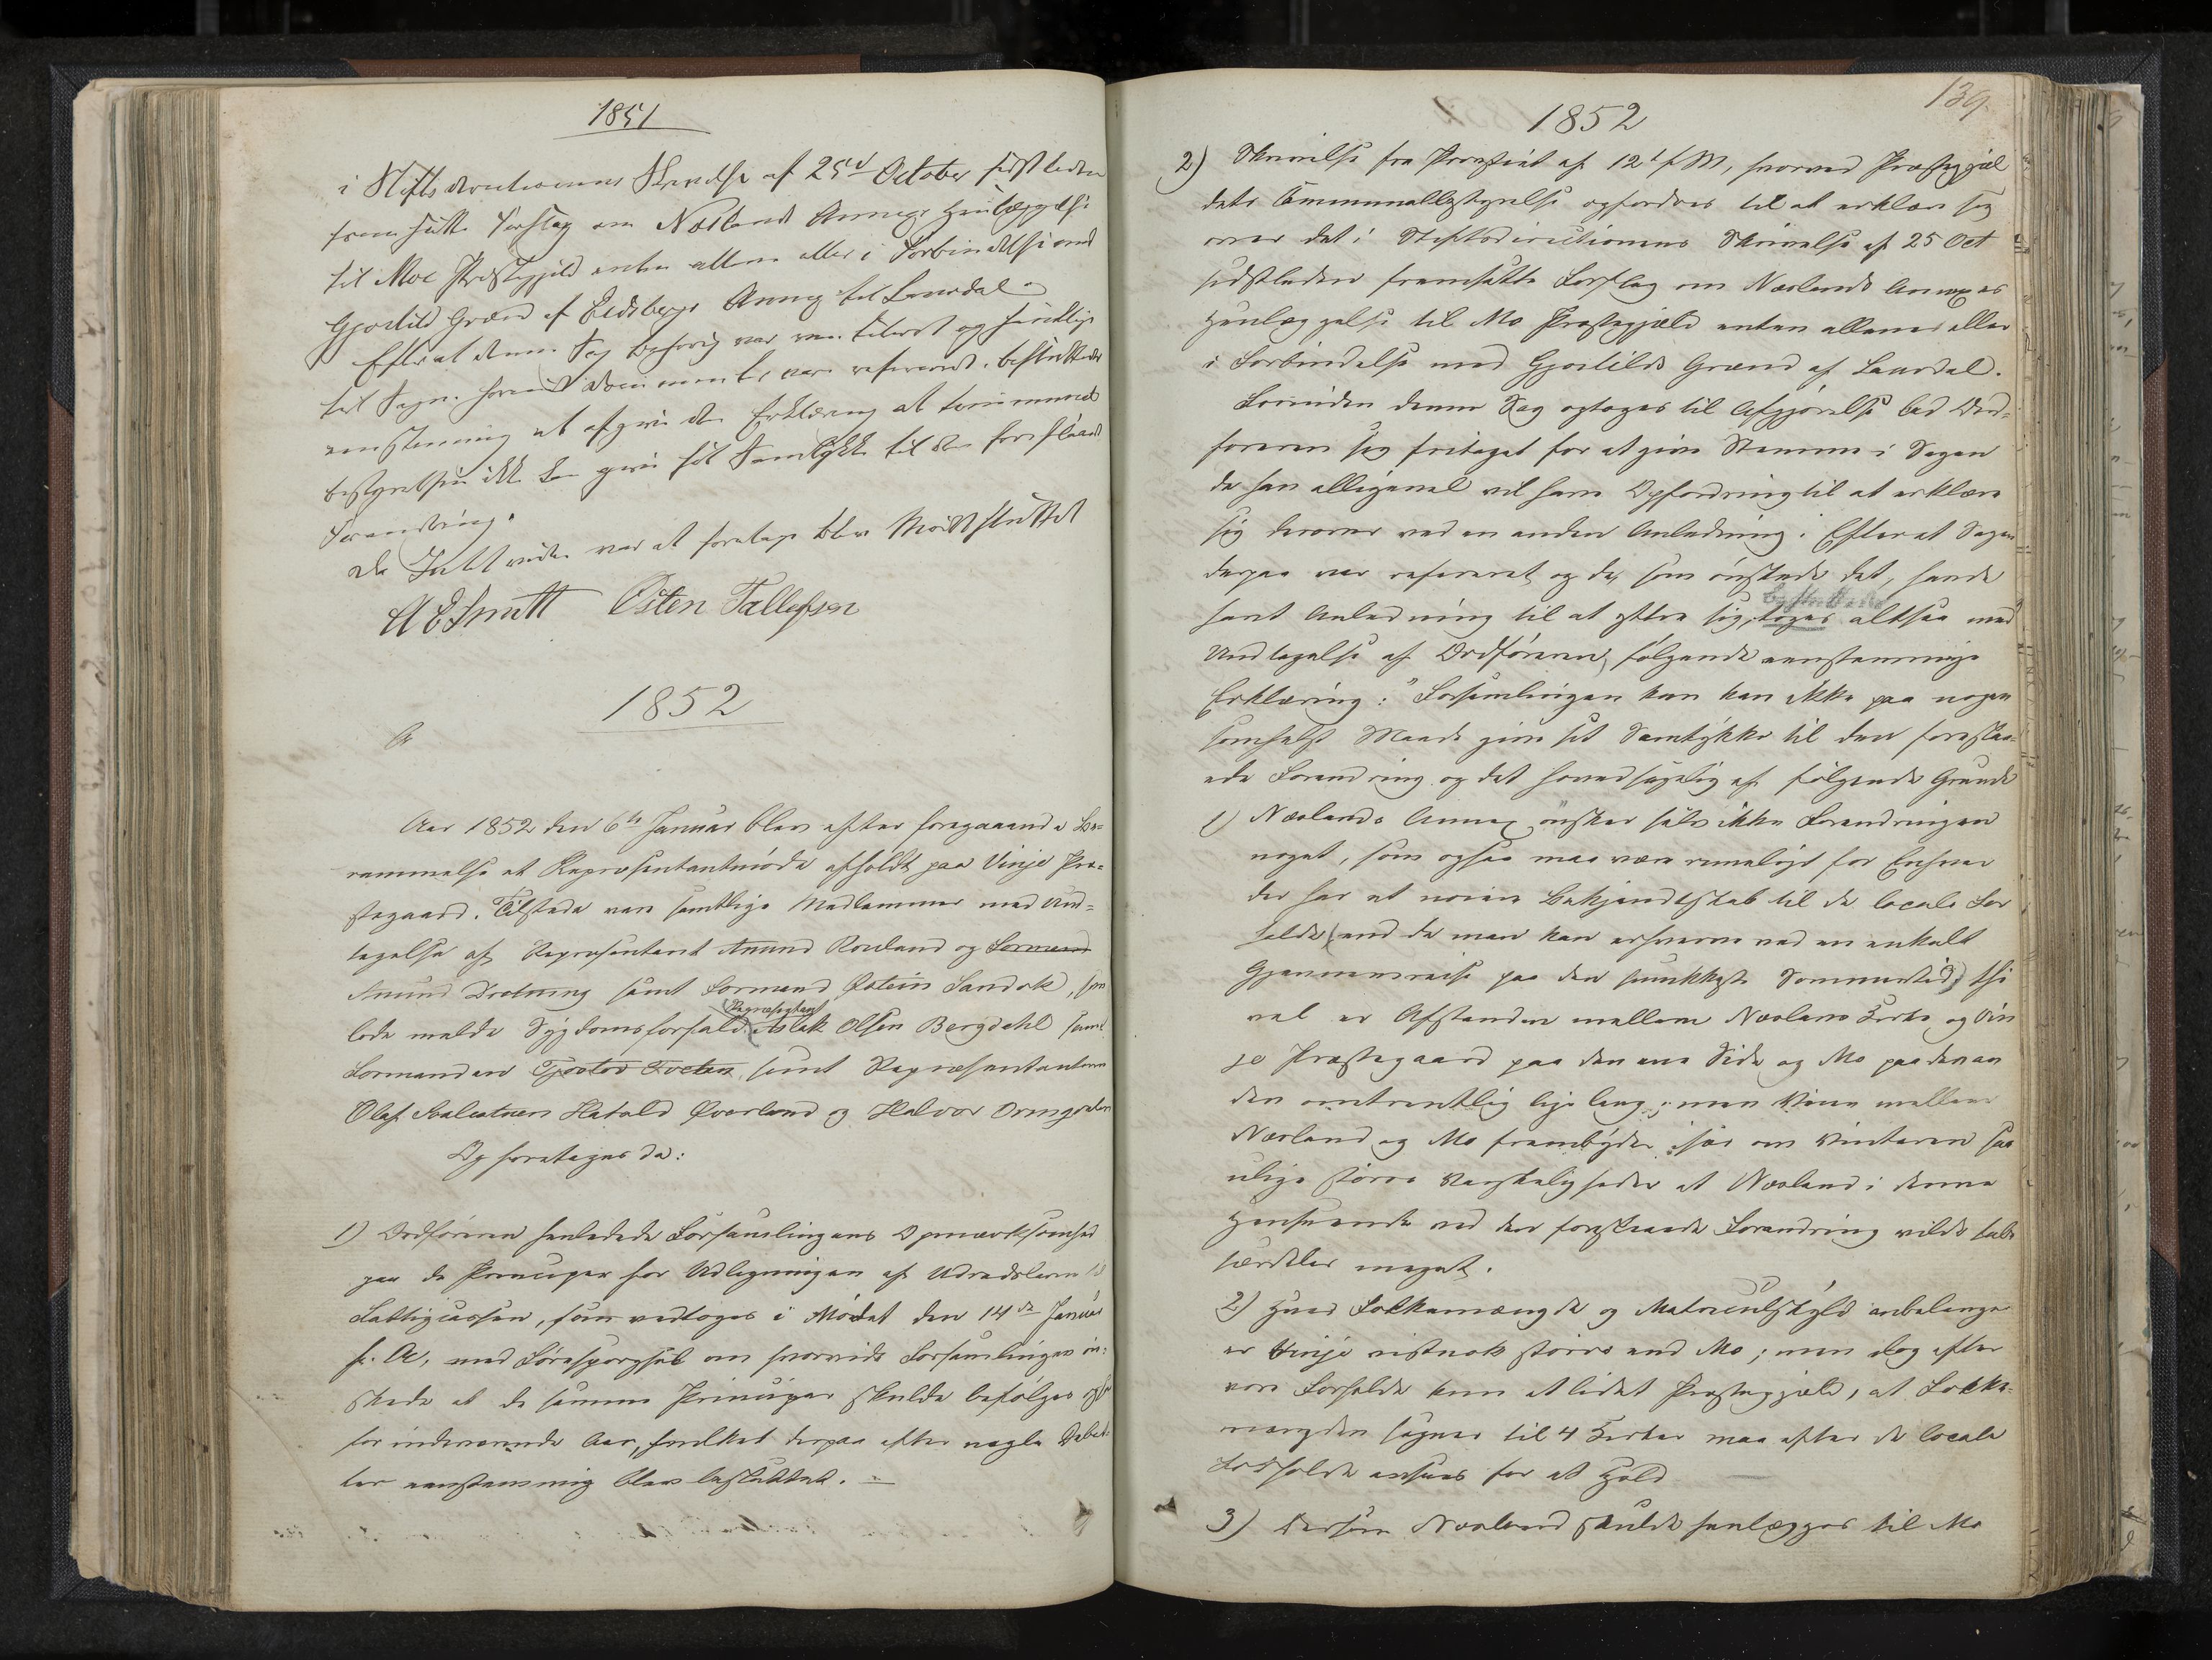 1851
i Stiftsdirectionens Skrivelse af 25de October sidstleden
fremsatte Forslag om Nesland Annexes Henlæggelse
til Moe Præstegjeld enten allene eller i Forbindelse med
Gjostild Grænd af Eidsborgs Annex til Laurdal
Efterat denne Sag behørig var ventileret og samtlige
til Sagen hørende Documenter vare refererede, besluttedes
eenstemmig at afgive den Erklæring at Communal
bestyrelsen ikke kan give sit Samtykke til den foreslaaede
Forandring.
Da Intet videre var at foretage blev Mødet sluttet
Østen Tallefsen
1852
Aar 1852 den 6te Januar blev efter foregaaende Be-
rammelse et Repræsentantmøde afholdt paa Vinje Præ-
stegaard. Tilstede vare samtlige Medlemmer med Und-
tagelse af Repræsentant Anund Rouland og Formand
Anund Drotning samt Formand Østein Sandok, som
Repræsentant
lode melde Sygdomsforfald. Aslak Olsen Bergdahl samt
Formanden Gjostov Tveten, samt Repræsentanterne
Olaf Halvor
Og foretoges da:
1) Ordføreren henledede Forsamlingens Opmærksomhed
paa de Principer for Udligningen af Udredslerne til
Fattigcassen, som vedtoges i Mødet den 14de Januar
f. A., med Forespørgsel om hvorvidt Forsamlingen øn-
skede at de samme Principer skulde befølges også
for indeværende Aar, hvilket derpaa efter nogle Debat-
ter eenstemmig blev besluttet. —
139.
1852
2) Skrivelse fra Provstiet af 12t f. M., hvorved Præstegjel
dets Communalbestyrelse opfordres til at erklære sig
over det i Stiftsdirectionens Skrivelse af 25 Oct
sidstleden fremsatte Forslag om Neslands Annexes
Henlæggelse til Mo Præstegjeld enten allene eller
i Forbindelse med Gjostilds Grænd af Laurdal.
Forinden denne Sag optoges til Afgjørelse bad Ord-
føreren sig fritaget for at give Stemme i Sagen
da han alligevel vil have Opfordring til at erklære
sig derover ved en anden Anledning. Efterat Sagen
derpaa var refereret og de, som ønskede det, havde
besluttedes
havt Anledning til at yttre sig, toges altsaa med
Undtagelse af Ordføreren, følgende eenstemmige
Erklæring: "Forsamlingen kan kan ikke paa nogen
somhelst Maade give sit Samtykke til den foreslaa-
ede Forandring og det hovedsagelig af følgende Grunde
1) Neslands Annex ønsker selv ikke Forandringen
noget, som ogsaa maa være rimeligt for Enhver
der har et noiere Bekjendtskab til de locale For
holde (end de man kan erhverve ved en enkelt
Gjennemreise paa den smukkeste Sommertid) thi
vel er Afstanden mellem Neslands Kirke og Vin
je Præstegaard paa den ene Side og Mo paa den an
den omtrentlig lige lang; men Veien mellem
Nesland og Mo frembyder især om Vinteren saa
ulige større Vanskeligheder at Nesland i denne
Henseende ved den foreslaaede Forandring vilde tabe
særdeles meget.
2) Hvad Folkemængde og Matriculskyld anbelanger
er Vinje vistnok større end Mo; men dog efter
vore Forholde kun et lidet Præstegjeld, at Folke-
mængden søger til 4 Kirker maa efter de locale
Forholde ansees for et Held —
3) Dersom Nesland skulde henlægges til Mo